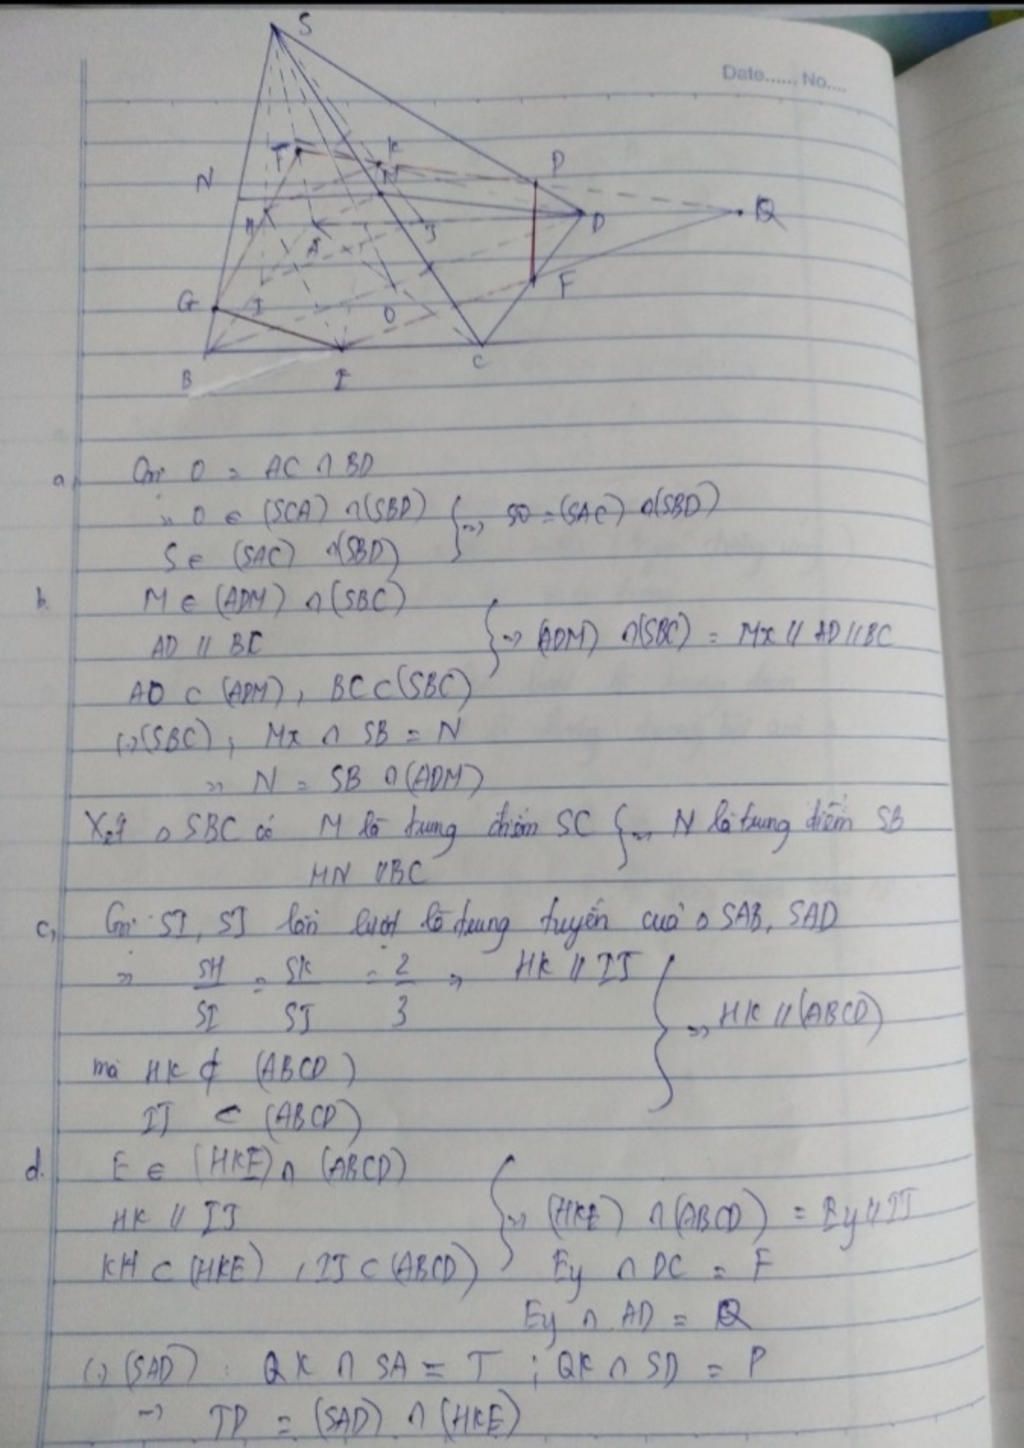 Date...... No....
S
T
K
N
M
P
H
A
J
D
Q
G
I
O
F
B
E
C
a, Gọi O = AC ∩ BD
⇒ O ∈ (SCA) ∩ (SBD) } ⇒ SO = (SAC) ∩ (SBD)
S ∈ (SAC) ∩ (SBD)
b. M ∈ (ADM) ∩ (SBC)
AD // BC } ⇒ (ADM) ∩ (SBC) = Mx // AD // BC
AD ⊂ (ADM), BC ⊂ (SBC)
(.) (SBC) ; Mx ∩ SB = N
⇒ N = SB ∩ (ADM)
Xét △ SBC có M là trung điểm SC } ⇒ N là trung điểm SB
MN // BC
c, Gọi SI, SJ lần lượt là trung tuyến của △ SAB, SAD
⇒ SH/SI = SK/SJ = 2/3 ⇒ HK // IJ
} ⇒ HK // (ABCD)
mà HK ⊄ (ABCD)
IJ ⊂ (ABCD)
d. E ∈ (HKE) ∩ (ABCD)
HK // IJ } ⇒ (HKE) ∩ (ABCD) = Ey // IJ
KH ⊂ (HKE), IJ ⊂ (ABCD) Ey ∩ DC = F
Ey ∩ AD = Q
(.) (SAD) : QK ∩ SA = T ; QK ∩ SD = P
→ TP = (SAD) ∩ (HKE)